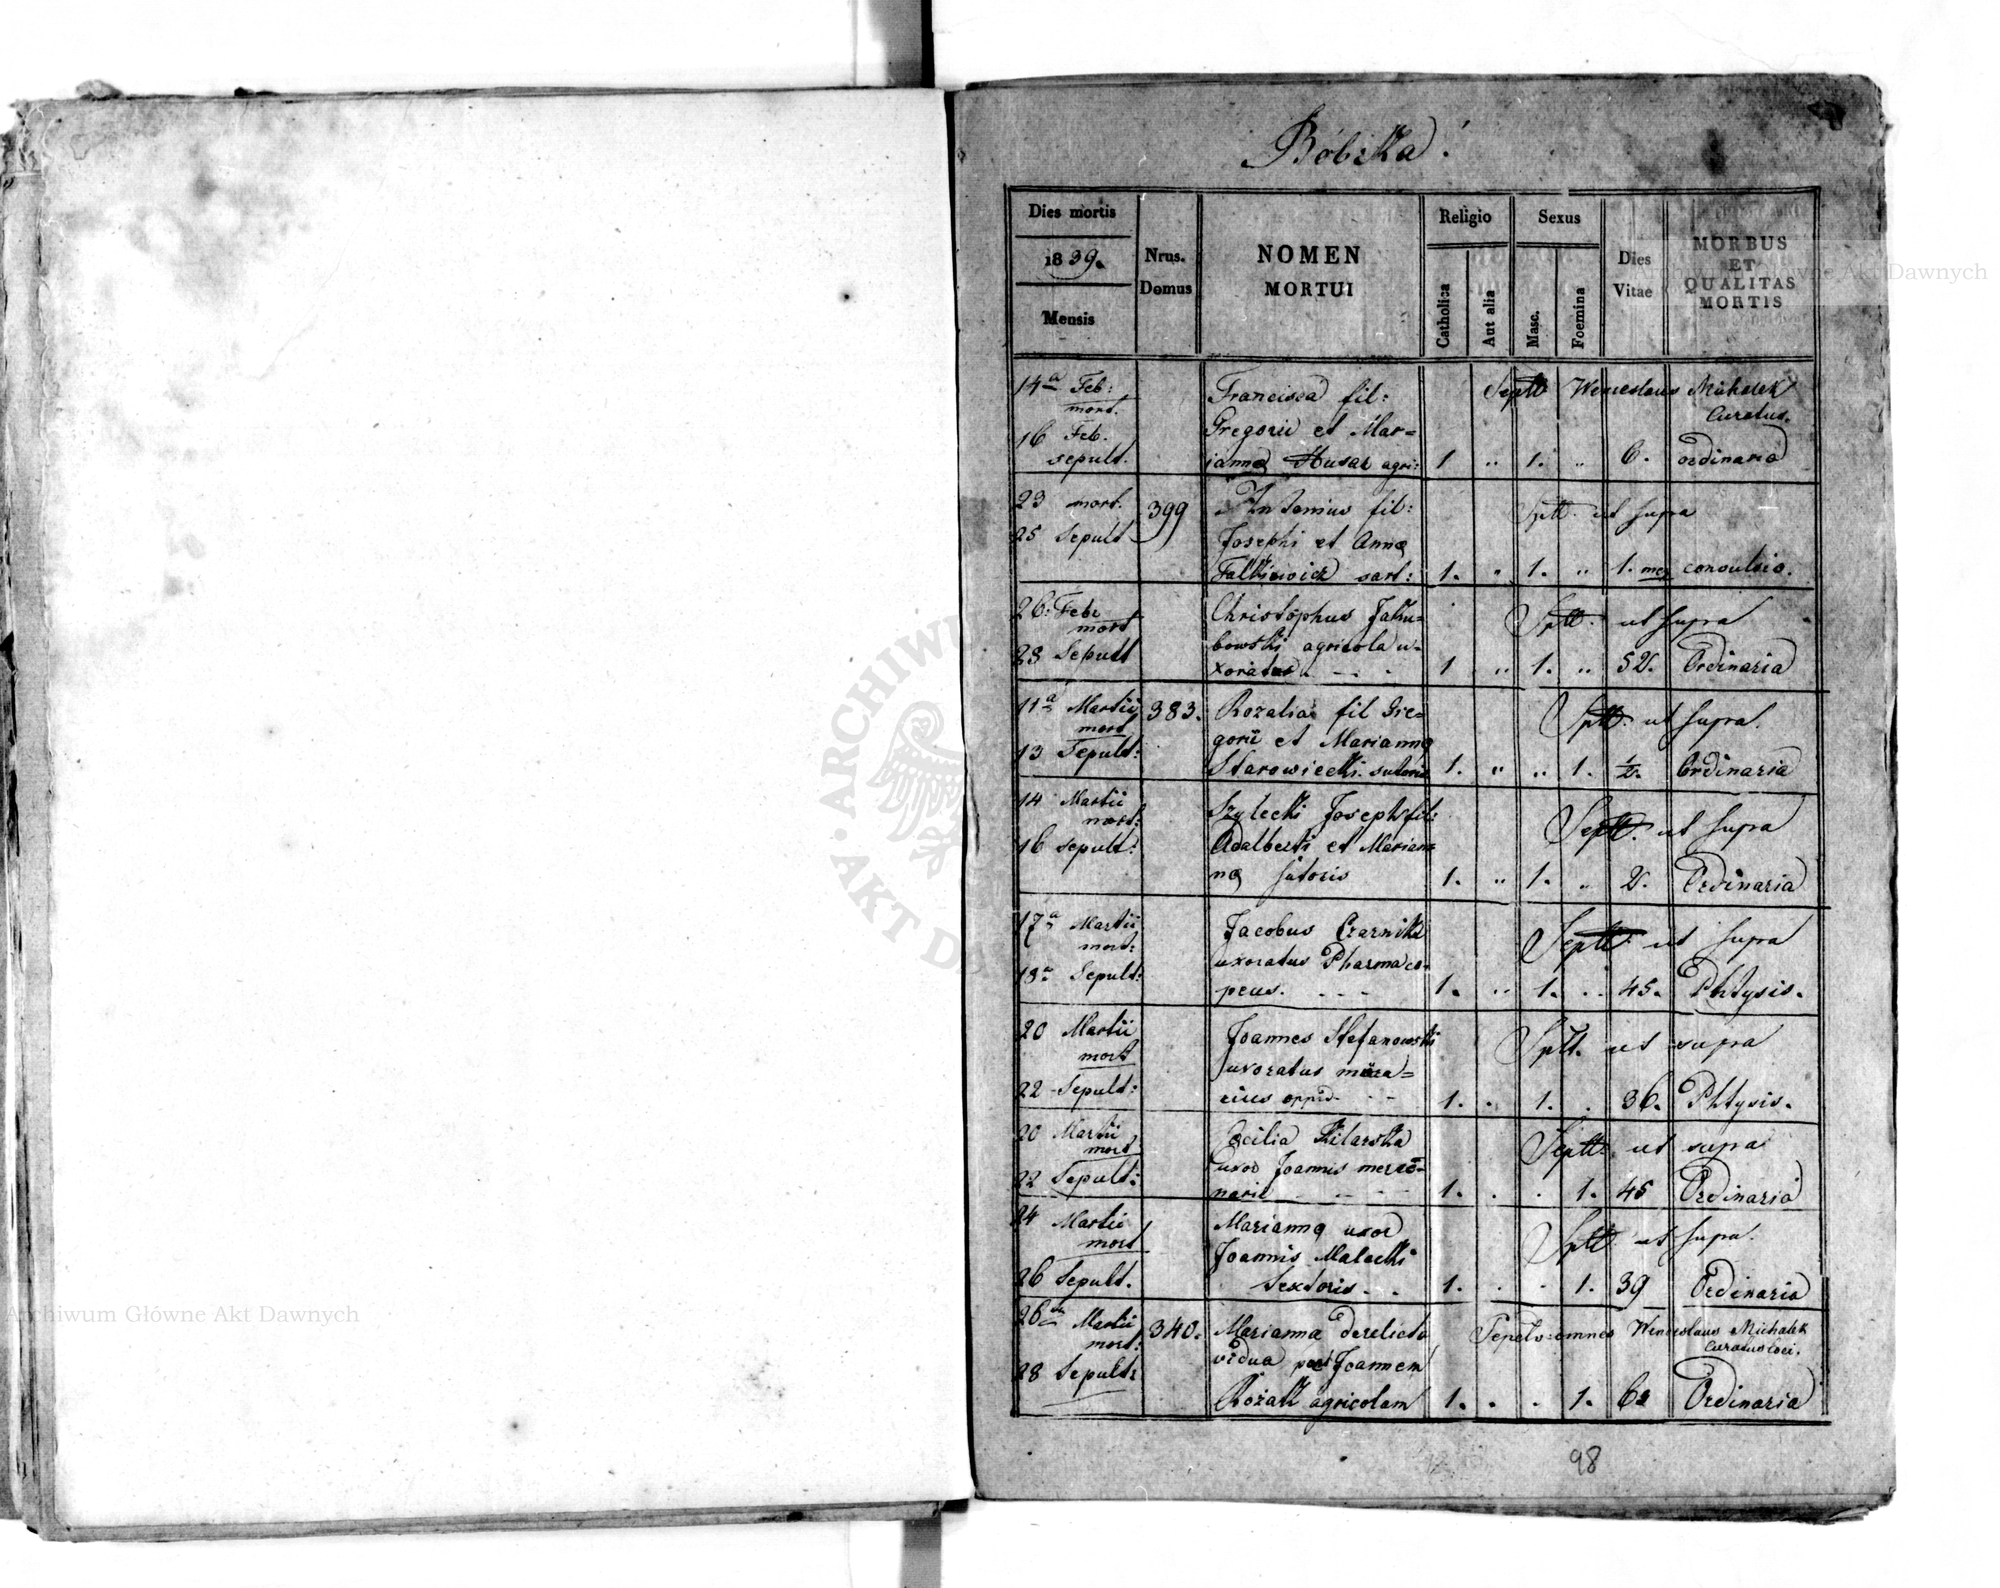 Bóbrka
Dies mortis
1839.
Mensis
Nrus. Domus
NOMEN
MORTUI
Religio
Catholica
Aut alia
Sexus
Masc.
Foemina
Dies Vitae
MORBUS
ET
QUALITAS
MORTIS
14a Feb: Francisca fil: Septt Wenceslaus Michalek
mort. Curatus.
16 Feb. Gregorii et Mar=
sepult. iannæ Husar agri: 1 " 1. " 6. ordinaria
23 mort. 399 Antonius fil: Sptt. ut supra
25 Sepult Josephi et Annæ
Falkiewicz sart: 1. " 1. " 1. mez convulsio.
26: Febr Christophus Jaku= Sptt. ut supra
mort
28 Sepult bowski agricola u=
xoratus - - - 1 " 1. " 52. Ordinaria
11a Martii 383. Rozalia fil Gre= Sptt. ut supra.
mort
13 Sepult: gorii et Mariannæ
Starowiecki sutoris 1. " " 1. 1/2. Ordinaria
14 Martii Szylecki Joseph fil: Septt. ut supra
mort:
16 sepult: Adalberti et Marian=
næ sutoris 1. " 1. " 2. Ordinaria
17a Martii Jacobus Czarnik Septt. ut supra
mort:
18a Sepult: uxoratus Pharmaco=
peus. - - - 1. " 1. " 45. Phtysis.
20 Martii Joannes Stefanowski Sptt. ut supra
mort
22 Sepult: uxoratus mura=
rius oppid. - - 1. . 1. . 36. Phtysis.
20 Martii Cæcilia Kilarska Septt. ut supra
mort
22 Sepult: uxor Joannis merce=
narii - - - 1. . . 1. 45 Ordinaria
24 Martii Mariannæ uxor Sptt. ut supra.
mort
26 Sepult. Joannis Malecki
Textoris - - 1. . . 1. 39 Ordinaria
26a Martii 340. Marianna derelicta Sepelv: omnes Wenceslaus Michalek
mort: Curatus loci.
28 Sepult: vidua post Joannem
Rożak agricolam 1. . . 1. 62 Ordinaria
98
Archiwum Główne Akt Dawnych
Archiwum Główne Akt Dawnych